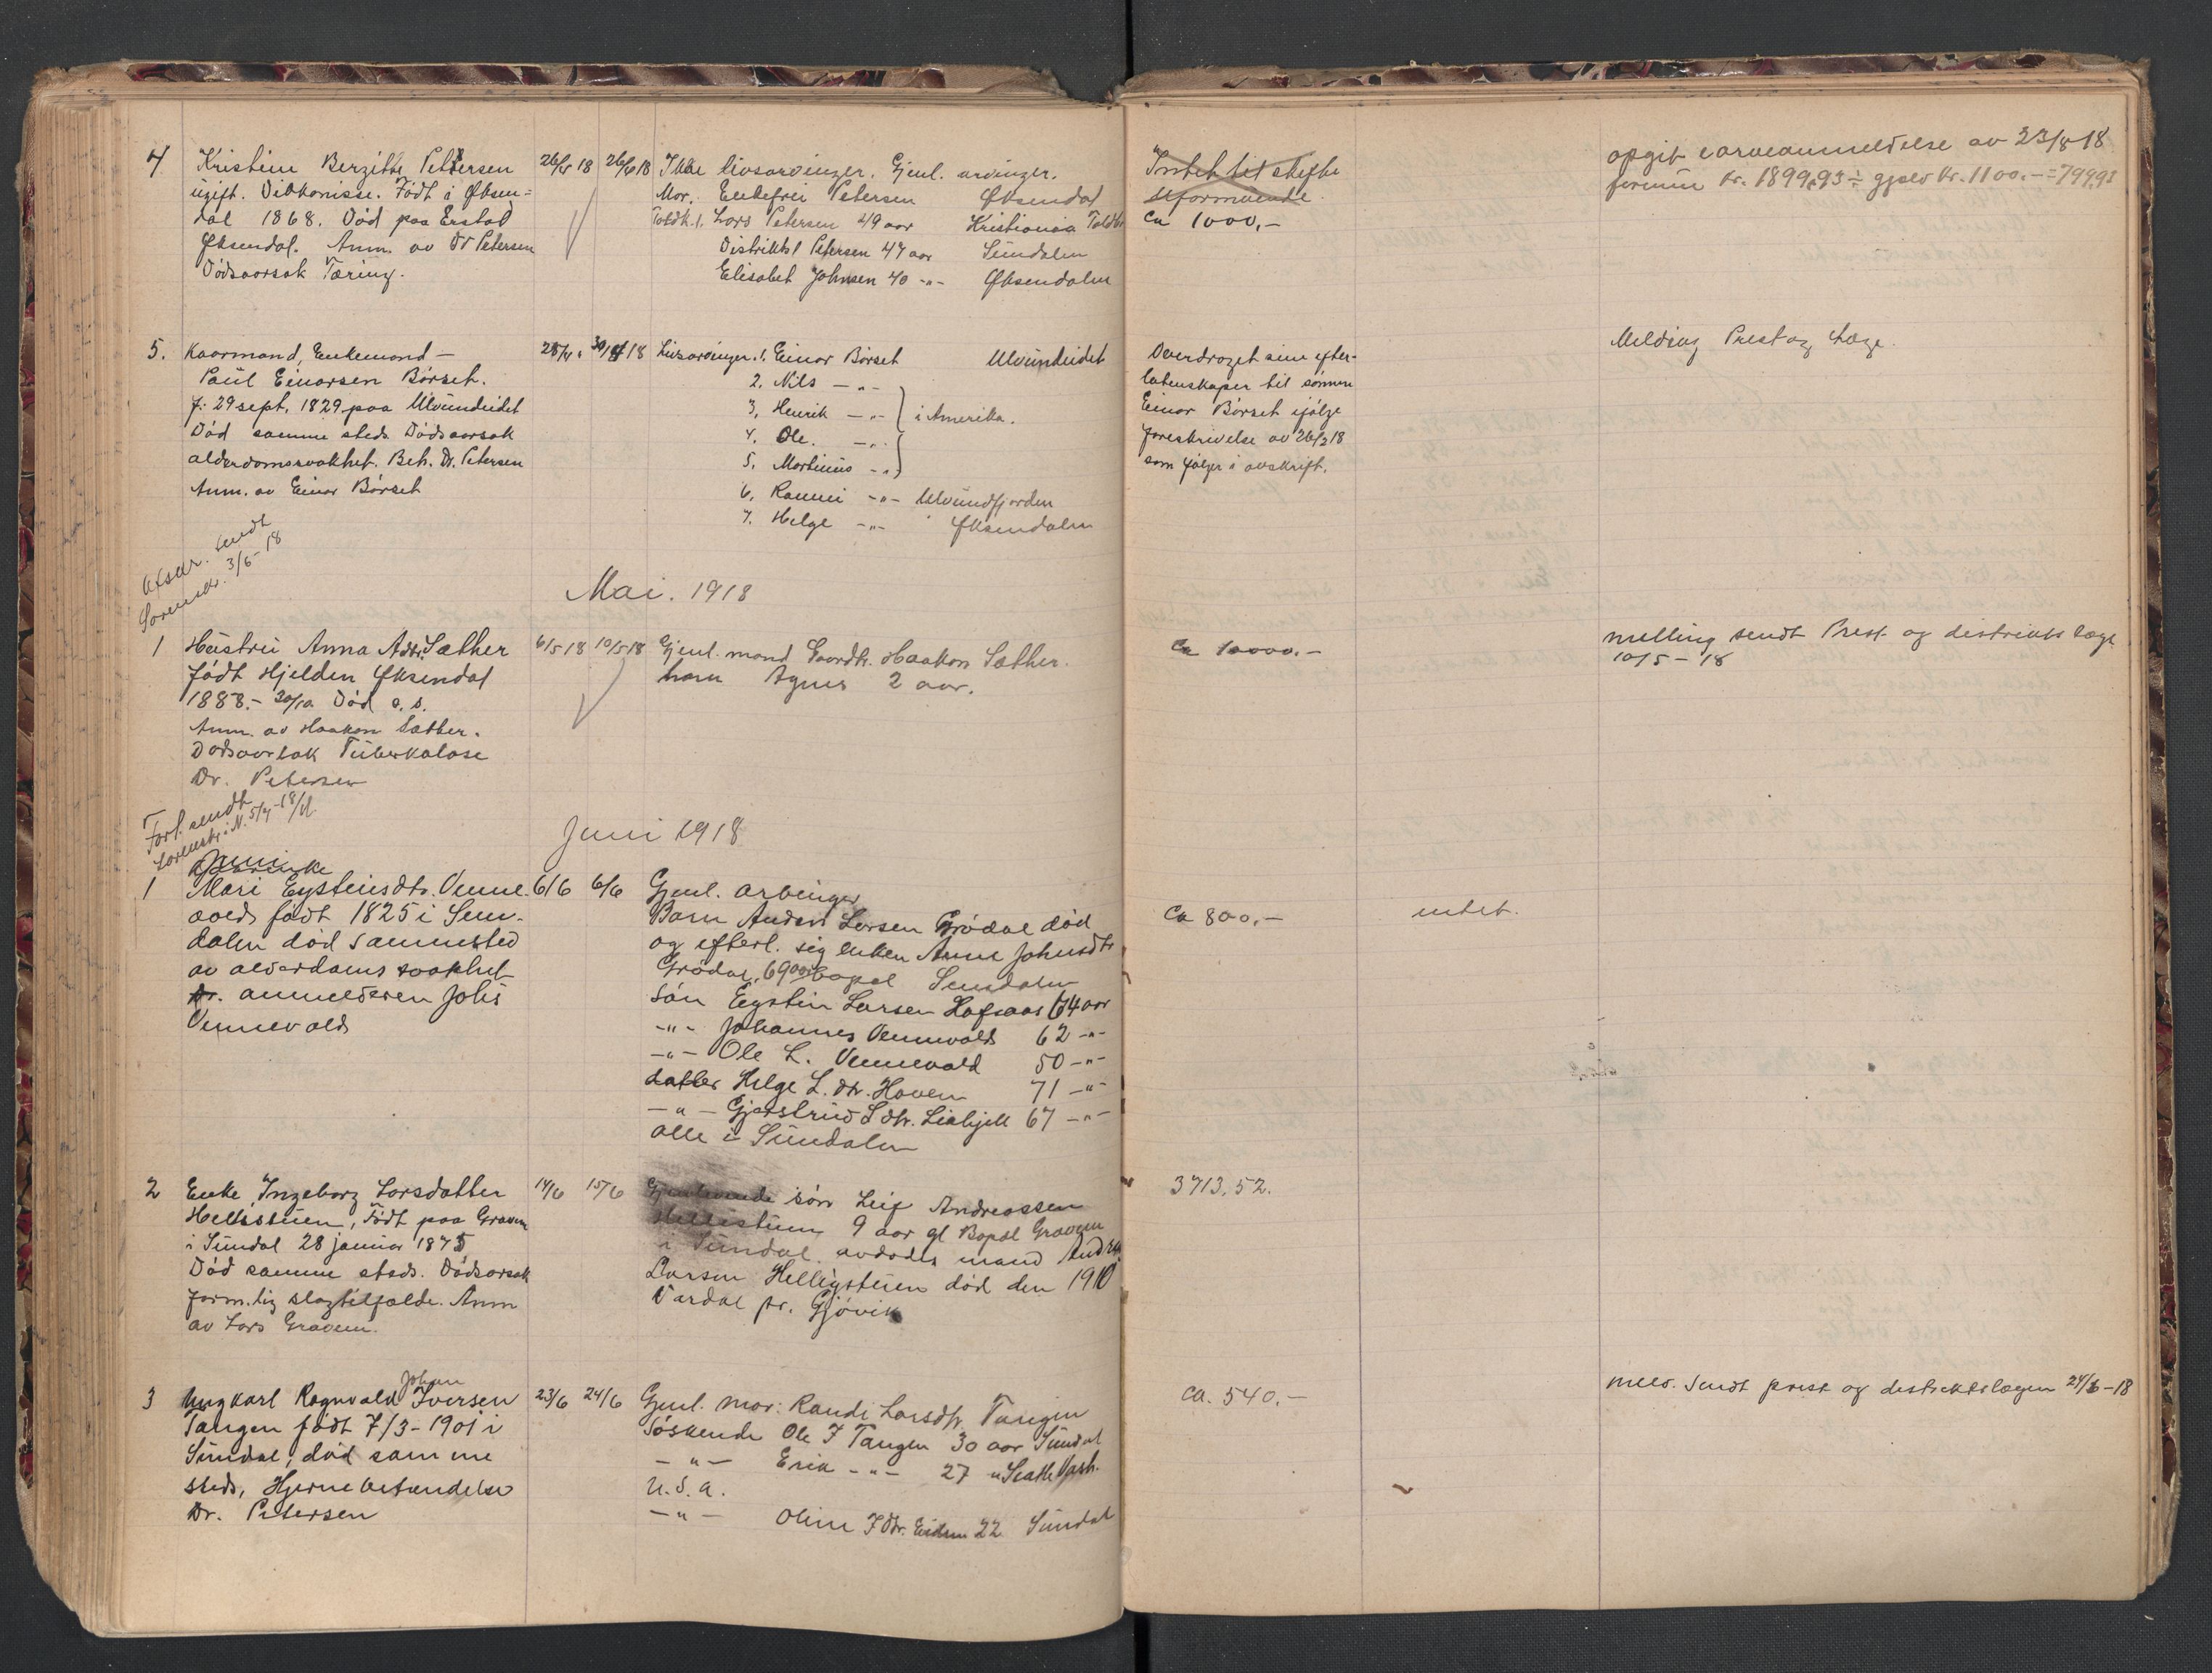 4 Kristine Bergitte Petersen 26/4 18 26/4 18 Ikke livsarvinger. Gjenl. arvinger.
ugift. Diakonisse. Født i Øksen- Mor, Enkefru Petersen Øksendal
dal 1868. Død paa Erstad Toldk.f. Lars Petersen 49 aar Kristiania Toldb.
Øksendal. Anm. av Dr Petersen Distriktsl Petersen 47 aar Sundalen
Dødsaarsak Tæring. Elisabet Johnsen 40 -"- Øksendalen
Intet til skifte
uformuende
Ca 1000,-
opgit i arveanmeldelse av 23/8 18
formue kr. 1899,93 ÷ gjæld kr. 1100.- = 799,93
5. Kaarmand, Enkemand – 28/4 30/4 18 Livsarvinger. 1. Einar Børset Ulvundeidet
Paul Einarsen Børset. 2. Nils -"-
f: 29 sept. 1829 paa Ulvundeidet 3. Henrik -"- i Amerika.
Død samme steds Dødsaarsak 4. Ole. -"-
alderdomssvakhet. Beh. Dr. Petersen 5. Martinus -"-
Anm. av Einar Børset 6. Ranni -"- Ulvundfjorden
7. Helge -"- Øksendalen
Overdraget sine efter-
latenskaper til sønnen
Einar Børset ifølge
foreskrivelse av 26/2 18
som følger i avskrift.
Melding Prest og Læge.
Afskr. sendt
Sorenskr. 3/6-18
Mai. 1918
1 Hustru Anna A.dtr. Sæther 6/5 18 10/5 18 Gjenl. mand Gaardbr. Haakon Sæther.
født Hjelden Øksendal barn Agnes 2 aar.
1888.- 30/10 Død s. s.
Anm. av Haakon Sæther.
Dødsaarsak Tuberkulose
Dr. Petersen
Ca 10000.-
melling sendt Prest og distrikts læge
10/5 – 18
Forl. sendt
Sorenskr. i N. 5/7-18/
Juni 1918
Juni
Gaardenke
1 Mari Eysteinsdtr. Venne- 6/6 6/6 Gjenl. arvinger
vold født 1825 i Sun- Barn Anders Larsen Grødal død
dalen død sammested og efterl. sig enken Anne Johnsdtr
av alderdoms svakhet Grødal, 69 aar bopæl Sundalen
Dr. anmelderen Johs Søn Eystein Larsen Hafsaas 64 aar
Vennevold -"- Johannes Vennevold 62 -"-
-"- Ole L. Vennevold 50 -"-
datter Helge L. dtr. Hoven 71 -"-
-"- Gjertrud L dtr. Liahjell 67 -"-
alle i Sundalen
Ca 800,- intet.
2 Enke Ingeborg Larsdatter 14/6 15/6 Gjenlevende søn Leif Andreassen
Hellistuen, Født paa Gravem Hellistuen 9 aar gl Bopæl Gravem
i Sundal 28 januar 1875 i Sundal avdødes mand Andreas
Død samme steds. Dødsorsak Larsen Helligstuen død den 1910
form.tlig slagtilfælde. Anm Vardal pr. Gjøvik
av Lars Gravem.
3713,52.
3 Ungkarl Ragnvald Johan Iversen 23/6 24/6 Gjenl. mor: Randi Larsdtr. Tangen
Tangen født 7/3-1901 i Søskende Ole I Tangen 30 aar Sundal
Sundal, død samme -"- Erik -"- 27 " Seatle Wash.
steds, Hjernebetændelse U.S.a.
Dr. Petersen -"- Oline I dtr. Eidem 22 Sundal
Ca. 540.-
meld. Sendt prest og distriktslægen 24/6-18